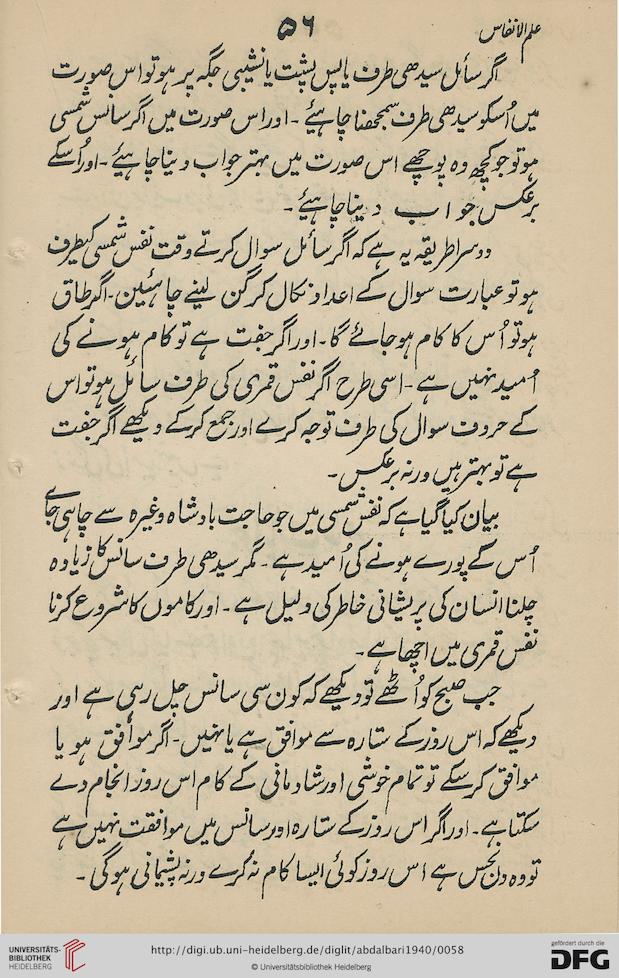 علم الانفاس
۵۶
اگر سائل سیدھی طرف یا پس پشت یا نشیبی جگہ پر ہو تو اس صورت
میں اُسکو سیدھی طرف سمجھنا چاہیئے ۔ اور اس صورت میں اگر سانس شمسی
ہو تو جو کچھ وہ پوچھے اس صورت میں بہتر جواب دینا چاہیئے ۔ اور اُسکے
برعکس جواب دینا چاہیئے ۔
دوسرا طریقہ یہ ہے کہ اگر سائل سوال کرتے وقت نفس شمسی کیطرف
ہو تو عبارت سوال کے اعداد نکال کر گن لینے چاہئیں ۔ اگر طاق
ہو تو اُس کا کام ہو جائے گا ۔ اور اگر جفت ہے تو کام ہونے کی
اُمید نہیں ہے ۔ اسی طرح اگر نفس قمری کی طرف سائل ہو تو اس
کے حروف سوال کی طرف توجہ کرے اور جمع کرکے دیکھے اگر جفت
ہے تو بہتر ہیں ورنہ برعکس ۔
بیان کیا گیا ہے کہ نفس شمسی میں جو حاجت بادشاہ وغیرہ سے چاہی جاے
اُس کے پورے ہونے کی اُمید ہے ۔ مگر سیدھی طرف سانس کا زیادہ
چلنا انسان کی پریشانی خاطر کی دلیل ہے ۔ اور کاموں کا شروع کرنا
نفس قمری میں اچھا ہے ۔
جب صبح کو اُٹھے تو دیکھے کہ کون سی سانس چل رہی ہے اور
دیکھے کہ اس روز کے ستارہ سے موافق ہے یا نہیں ۔ اگر موافق ہو یا
موافق کرسکے تو تمام خوشی اور شادمانی کے کام اس روز انجام دے
سکتا ہے ۔ اور اگر اس روز کے ستارہ اور سانس میں موافقت نہیں ہے
تو وہ دن نحس ہے اس روز کوئی ایسا کام نہ کرے ورنہ پشیمانی ہوگی ۔
UNIVERSITÄTS-
BIBLIOTHEK
HEIDELBERG
http://digi.ub.uni-heidelberg.de/diglit/abdalbari1940/0058
© Universitätsbibliothek Heidelberg
gefördert durch die
DFG